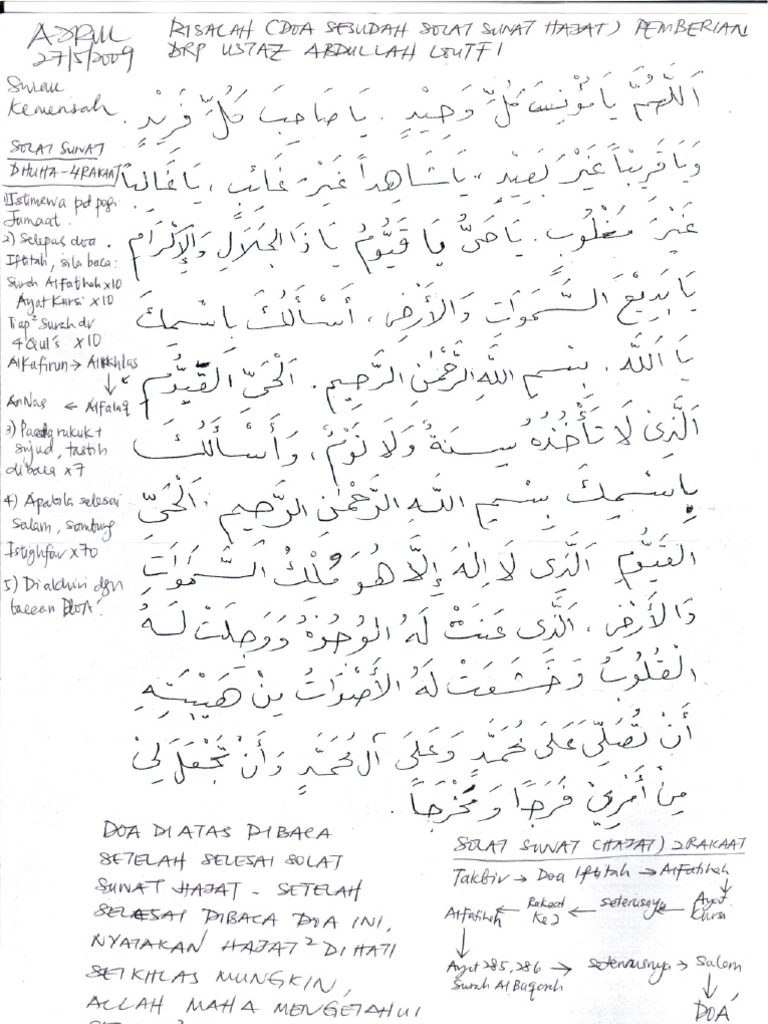 ADRUL
27/5/2009
RISALAH (DOA SESUDAH SOLAT SUNAT HAJAT) PEMBERIAN
DRP USTAZ ABDULLAH LOUTFI
Surau
Kemensah
اَللّٰهُمَّ يَا مُؤْنِسَ كُلِّ وَحِيْدٍ . يَا صَاحِبَ كُلِّ فَرِيْدٍ .
وَيَا قَرِيْبًا غَيْرَ بَعِيْدٍ ، يَا شَاهِدًا غَيْرَ غَائِبٍ ، يَا غَالِبًا
غَيْرَ مَغْلُوْبٍ . يَا حَىُّ يَا قَيُّوْمُ يَا ذَا الْجَلَالِ وَالْإِكْرَامِ
يَا بَدِيْعَ السَّمٰوَاتِ وَالْأَرْضِ ، أَسْأَلُكَ بِاسْمِكَ
يَا اَللّٰه . بِسْمِ اللّٰهِ الرَّحْمٰنِ الرَّحِيمِ . اَلْحَىِّ اَلْقَيُّوْمِ
اَلَّذِى لَا تَأْخُذُهُ سِنَةٌ وَلَا نَوْمٌ ، وَأَسْأَلُكَ
بِاسْمِكَ بِسْمِ اللّٰهِ الرَّحْمٰنِ الرَّحِيمِ . اَلْحَىِّ
الْقَيُّوْمِ اَلَّذِى لَا اِلٰهَ إِلَّا هُوَ مَلِكُ السَّمٰوَاتِ
وَالْأَرْضِ ، اَلَّذِى عَنَتْ لَهُ الْوُجُوْهُ وَوَجِلَتْ لَهُ
الْقُلُوْبُ وَخَشَعَتْ لَهُ الْأَصْوَاتُ مِنْ هَيْبَتِهِ
أَنْ تُصَلِّيَ عَلَى مُحَمَّدٍ وَعَلَى آلِ مُحَمَّدٍ وَأَنْ تَجْعَلَ لِيْ
مِنْ أَمْرِيْ فَرَجًا وَمَخْرَجًا .
SOLAT SUNAT
DHUHA - 4 RAKAAT
1) Istimewa pd pagi
Jumaat.
2) Selepas doa
Iftitah, sila baca:
Surah AlFatihah x10
Ayat Kursi x10
Tiap² Surah dr
4 Qul's x10
AlKafirun → AlIkhlas
↓
AnNas ← AlFalaq
3) Pada rukuk +
sujud, tasbih
dibaca x7
4) Apabila selesai
salam, sambung
Istighfar x70
5) Diakhiri dgn
bacaan DOA.
DOA DIATAS DIBACA
SETELAH SELESAI SOLAT
SUNAT HAJAT - SETELAH
SELESAI DIBACA DOA INI,
NYATAKAN HAJAT² DI HATI
SEIKHLAS MUNGKIN,
ALLAH MAHA MENGETAHUI
SOLAT SUNAT (HAJAT) 2 RAKAAT
Takbir → Doa Iftitah → AlFatihah
↓
AlFatihah ← Rakaat Ke 2 ← seterusnya ← Ayat Kursi
↓
Ayat 285, 286 Surah AlBaqarah → seterusnya → Salam
↓
DOA